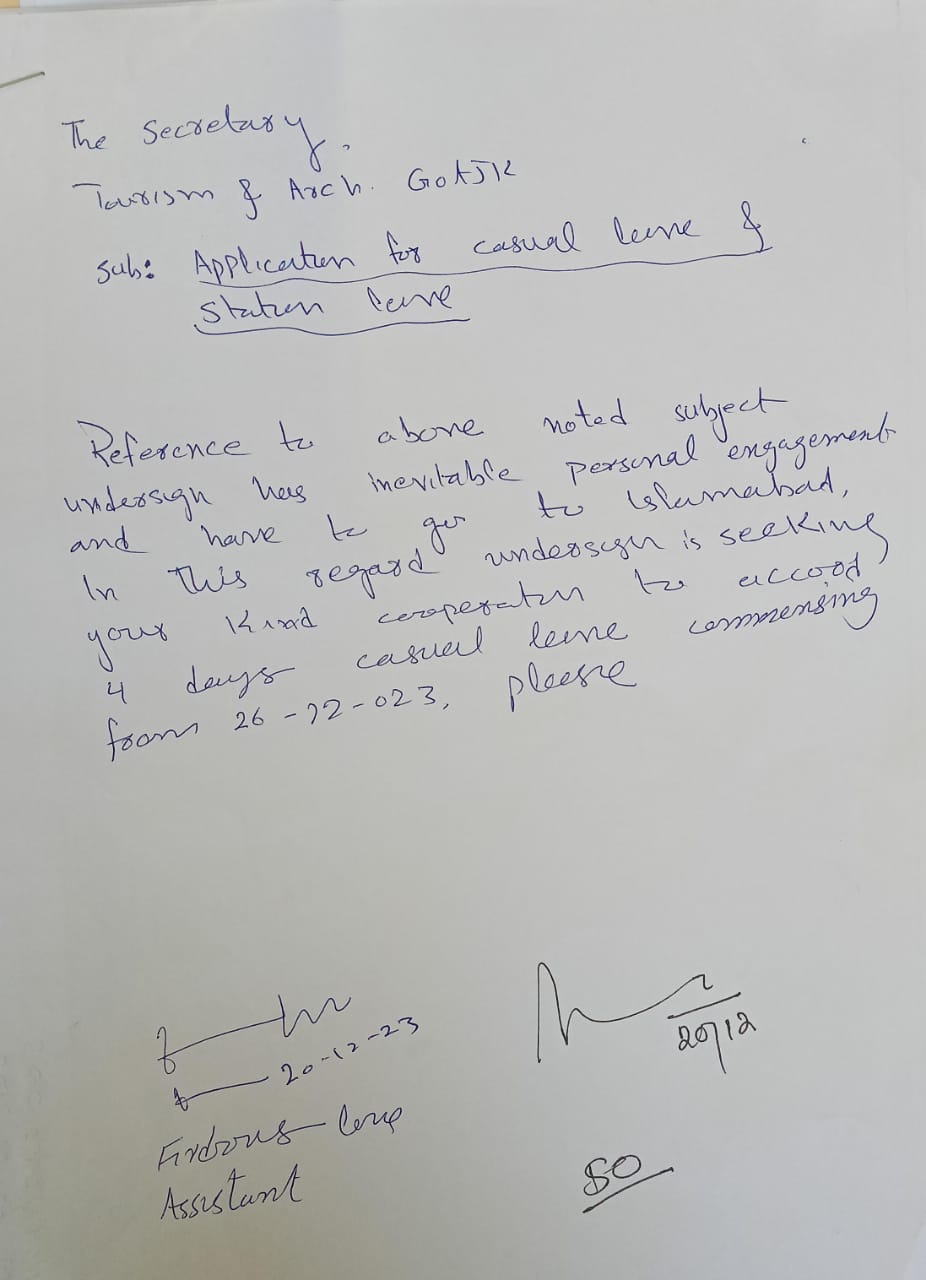 The Secretary.
Tourism & Arch. GoAJK
Sub: Application for casual leave &
Station leave
Reference to above noted subject
undersign has inevitable personal engagement
and have to go to Islamabad,
In this regard undersign is seeking
your kind cooperation to accord
4 days casual leave commensing
from 26-12-023, please
20-12-23
20/12
Firdous
Assistant
SO